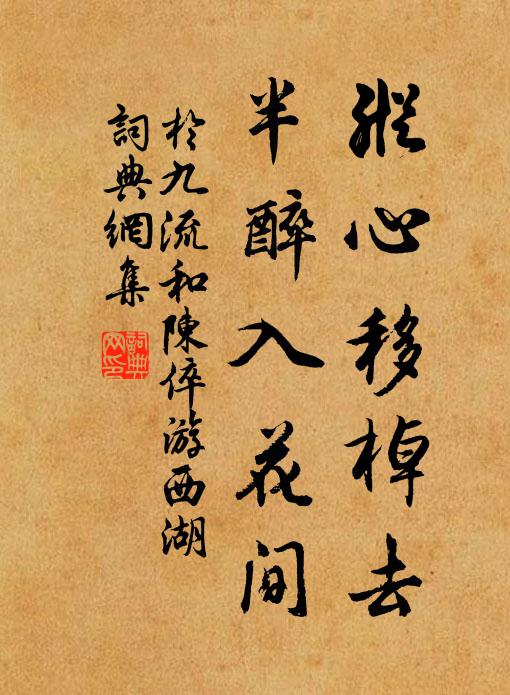 縱心移棹去
半醉入花間
於九流和陳倅游西湖
詞典網集
詞典
網印